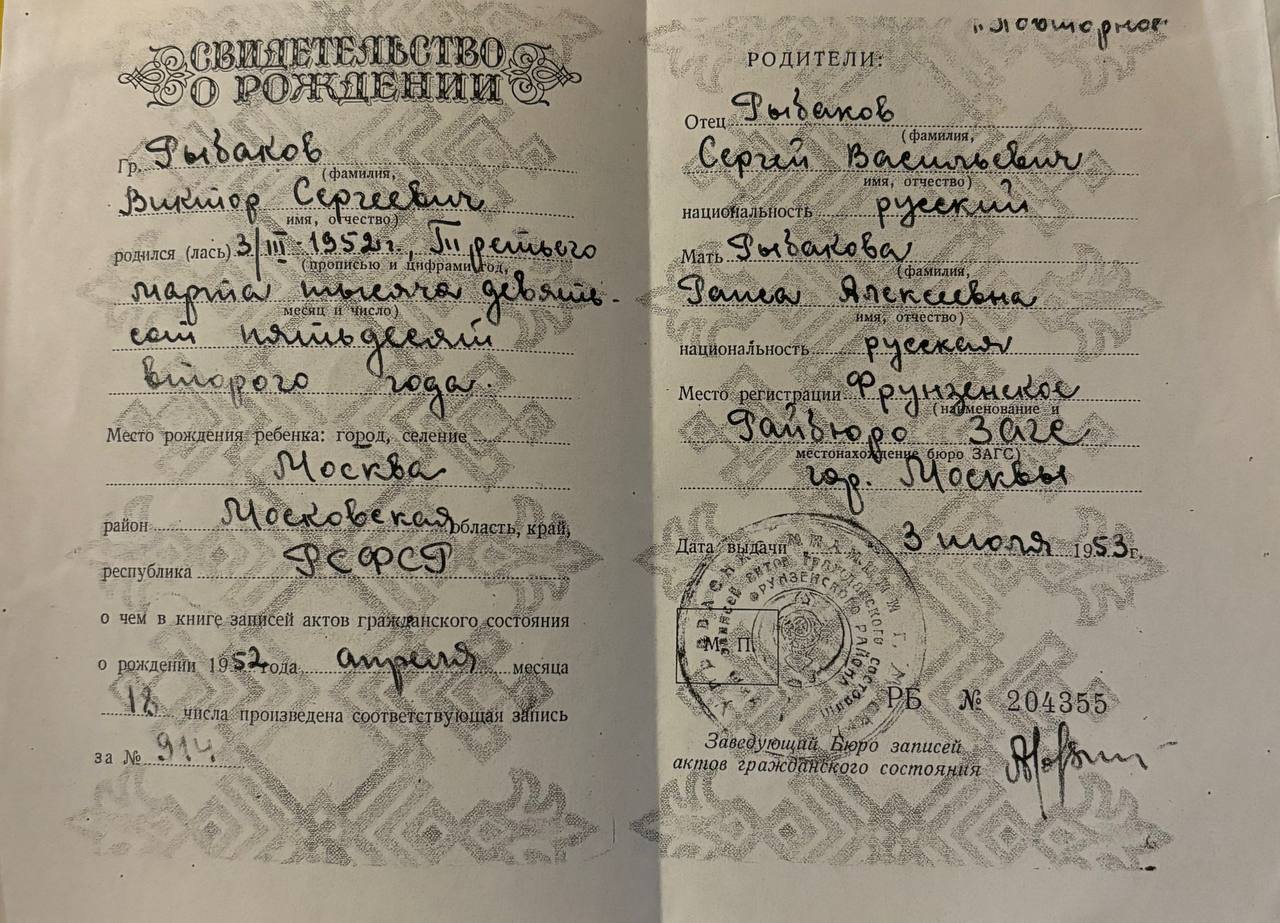 СВИДЕТЕЛЬСТВО
О РОЖДЕНИИ
Гр. Рыбаков
(фамилия,
Виктор Сергеевич
имя, отчество)
родился (лась) 3/III-1952 г., Третьего
(прописью и цифрами год,
марта тысяча девять-
месяц и число)
сот пятьдесят
второго года.
Место рождения ребенка: город, селение
Москва
район Московская область, край,
республика РСФСР
о чем в книге записей актов гражданского состояния
о рождении 1952 года апреля месяца
18 числа произведена соответствующая запись
за № 914
"Повторное"
РОДИТЕЛИ:
Отец Рыбаков
(фамилия,
Сергей Васильевич
имя, отчество)
национальность русский
Мать Рыбакова
(фамилия,
Раиса Алексеевна
имя, отчество)
национальность русская
Место регистрации Фрунзенское
(наименование и
Райбюро Загс
местонахождение бюро ЗАГС)
гор. Москвы
Дата выдачи 3 июля 1953 г.
М. П.
записей актов гражданского состояния
ФРУНЗЕНСКОГО РАЙОНА
РБ № 204355
Заведующий Бюро записей
актов гражданского состояния